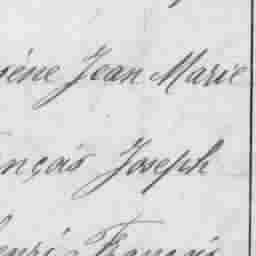 ène Jean Marie
nçois Joseph
enri François